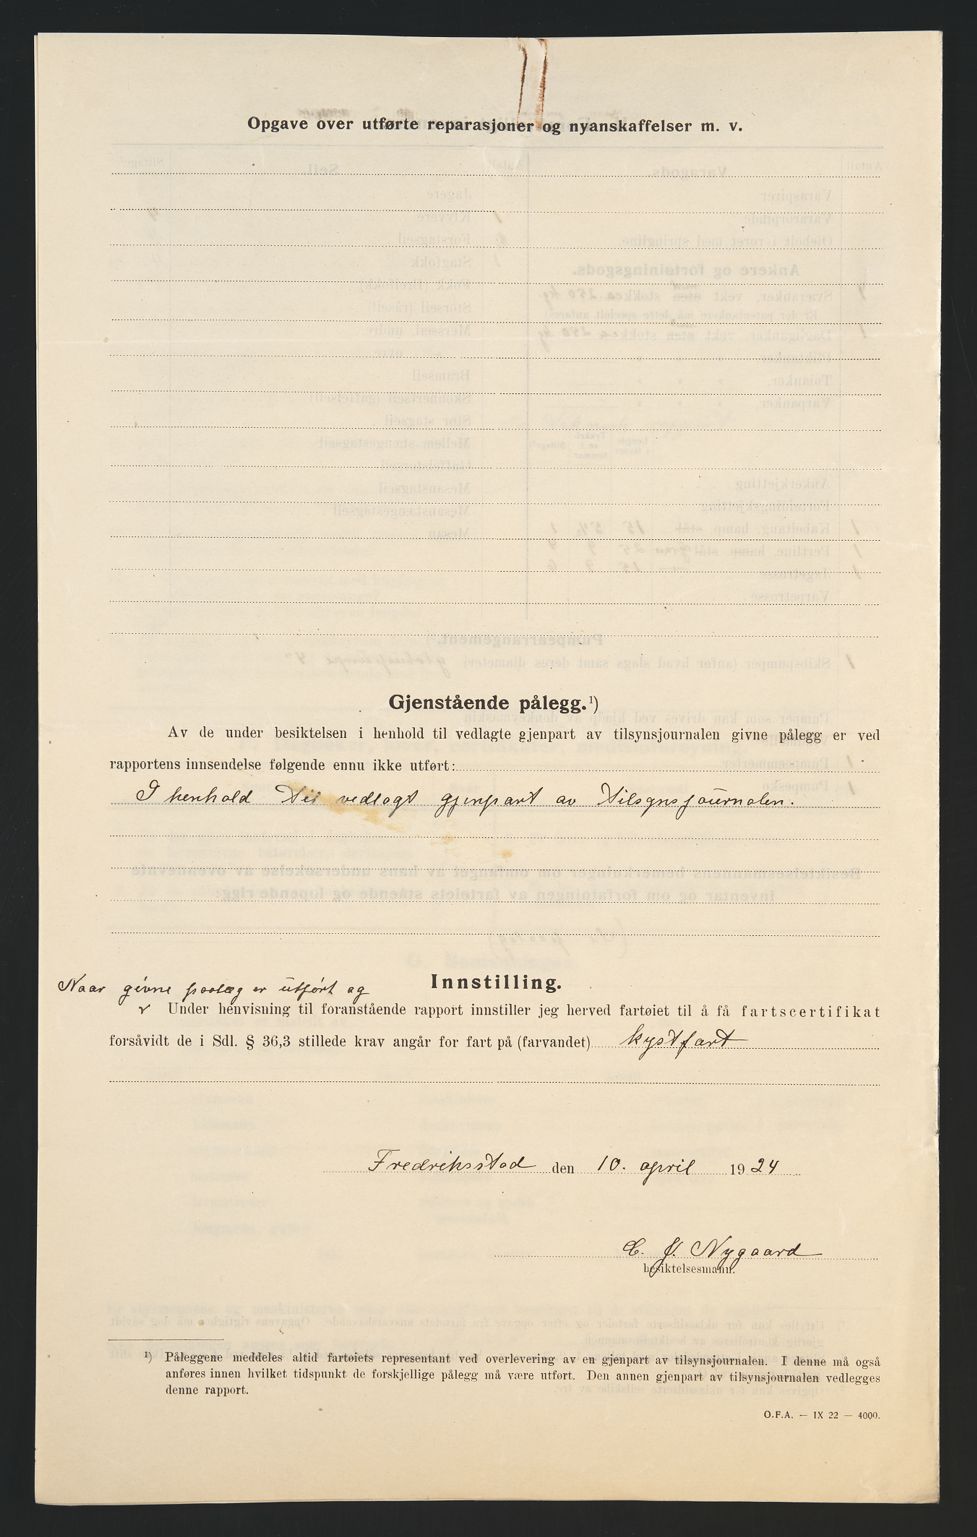 Opgave over utførte reparasjoner og nyanskaffelser m. v.
Gjenstående pålegg.¹)
Av de under besiktelsen i henhold til vedlagte gjenpart av tilsynsjournalen givne pålegg er ved
rapportens innsendelse følgende ennu ikke utført:
I henhold til vedlagt gjenpart av tilsynsjournalen.
Innstilling.
Naar givne paalæg er utført og
√ Under henvisning til foranstående rapport innstiller jeg herved fartøiet til å få fartscertifikat
forsåvidt de i Sdl. § 36,3 stillede krav angår for fart på (farvandet) kystfart
Fredriksstad den 10. april 1924
C. J. Nygaard
besiktelsesmann.
¹) Påleggene meddeles altid fartøiets representant ved overlevering av en gjenpart av tilsynsjournalen. I denne må også
anføres innen hvilket tidspunkt de forskjellige pålegg må være utført. Den annen gjenpart av tilsynsjournalen vedlegges
denne rapport.
O.F.A. — IX 22 — 4000.